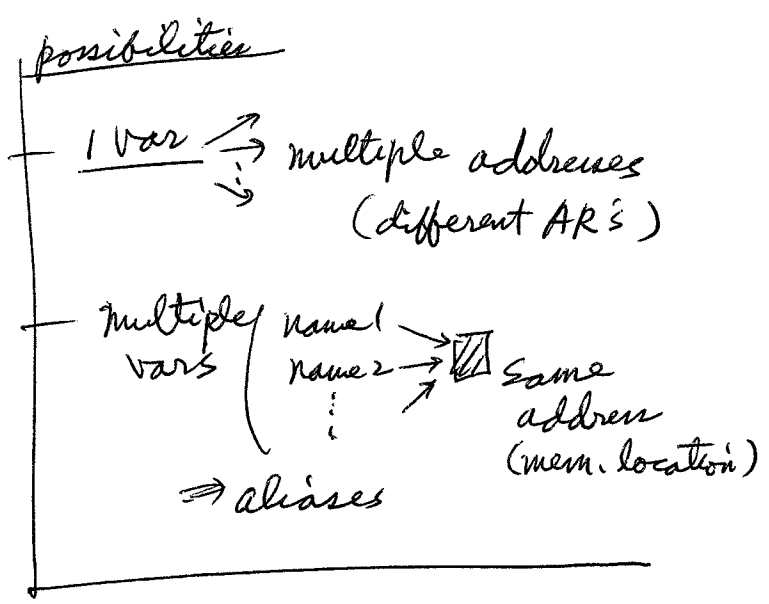 possibilities
1 var → multiple addresses
(different AR's)
multiple name1
vars name2
same
address
(mem. location)
⇒ aliases